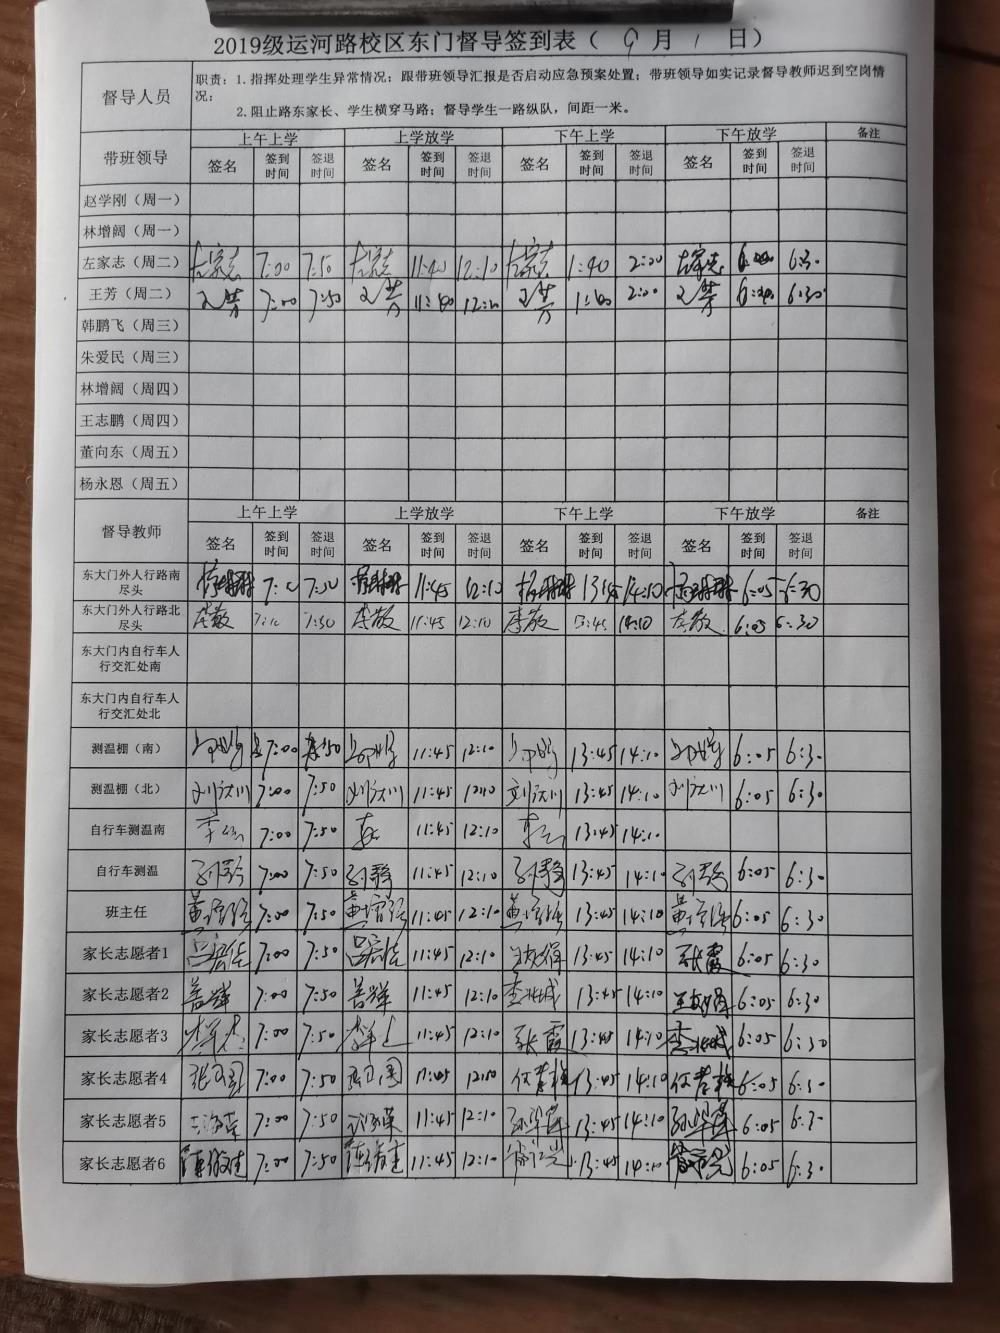 2019级运河路校区东门督导签到表（ 9 月 1 日）
督导人员
职责：1.指挥处理学生异常情况；跟带班领导汇报是否启动应急预案处置；带班领导如实记录督导教师迟到空岗情
况；
2.阻止路东家长、学生横穿马路；督导学生一路纵队，间距一米。
带班领导 上午上学 上学放学 下午上学 下午放学 备注
签名 签到时间 签退时间 签名 签到时间 签退时间 签名 签到时间 签退时间 签名 签到时间 签退时间
赵学刚（周一）
林增阔（周一）
左家志（周二） 左家志 7:00 7:50 左家志 11:40 12:10 左家志 1:40 2:00 左家志 6:30
王芳（周二） 王芳 7:00 7:50 王芳 11:40 12:10 王芳 1:40 2:00 王芳 6:30
韩鹏飞（周三）
朱爱民（周三）
林增阔（周四）
王志鹏（周四）
董向东（周五）
杨永恩（周五）
督导教师 上午上学 上学放学 下午上学 下午放学 备注
签名 签到时间 签退时间 签名 签到时间 签退时间 签名 签到时间 签退时间 签名 签到时间 签退时间
东大门外人行路南尽头 7:50 11:45 12:10 13:45 14:10 6:05 6:30
东大门外人行路北尽头 李敬 7:10 7:50 李敬 11:45 12:10 李敬 13:45 14:10 李敬 6:05 6:30
东大门内自行车人行交汇处南
东大门内自行车人行交汇处北
测温棚（南） 7:00 7:50 11:45 12:10 13:45 14:10 6:05 6:30
测温棚（北） 刘汉川 7:00 7:50 刘汉川 11:45 12:10 刘汉川 13:45 14:10 刘汉川 6:05 6:30
自行车测温南 7:00 7:50 11:45 12:10 13:45 14:10
自行车测温 7:00 7:50 孙静 11:45 12:10 孙静 13:45 14:10 6:05 6:30
班主任 7:00 7:50 11:45 12:10 13:45 14:10 6:05 6:30
家长志愿者1 7:00 7:50 11:45 12:10 13:45 14:10 张霞 6:05 6:30
家长志愿者2 7:00 7:50 11:45 12:10 13:45 14:10 6:05 6:30
家长志愿者3 7:00 7:50 11:45 12:10 张霞 13:45 14:10 6:05 6:30
家长志愿者4 7:00 7:50 11:45 13:45 14:10 6:05 6:30
家长志愿者5 7:00 7:50 11:45 12:10 13:45 14:10 6:05 6:30
家长志愿者6 7:00 7:50 11:45 12:10 13:45 14:10 6:05 6:30